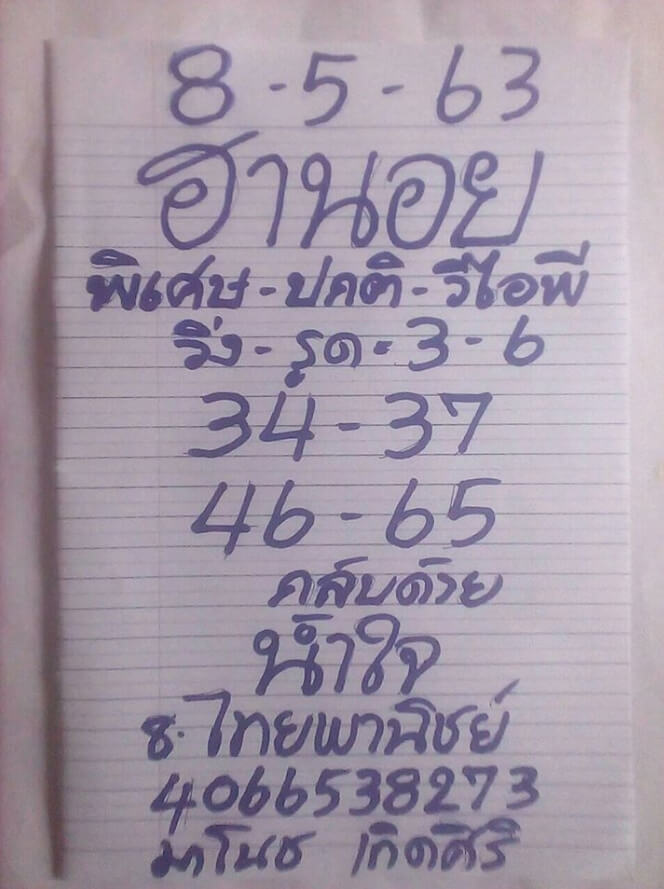 8-5-63
ฮานอย
พิเศษ-ปกติ-วีไอพี
วิ่ง-รูด=3-6
34-37
46-65
กลับด้วย
น้ำใจ
ธ.ไทยพานิชย์
4066538273
มาโนช เกิดศิริ